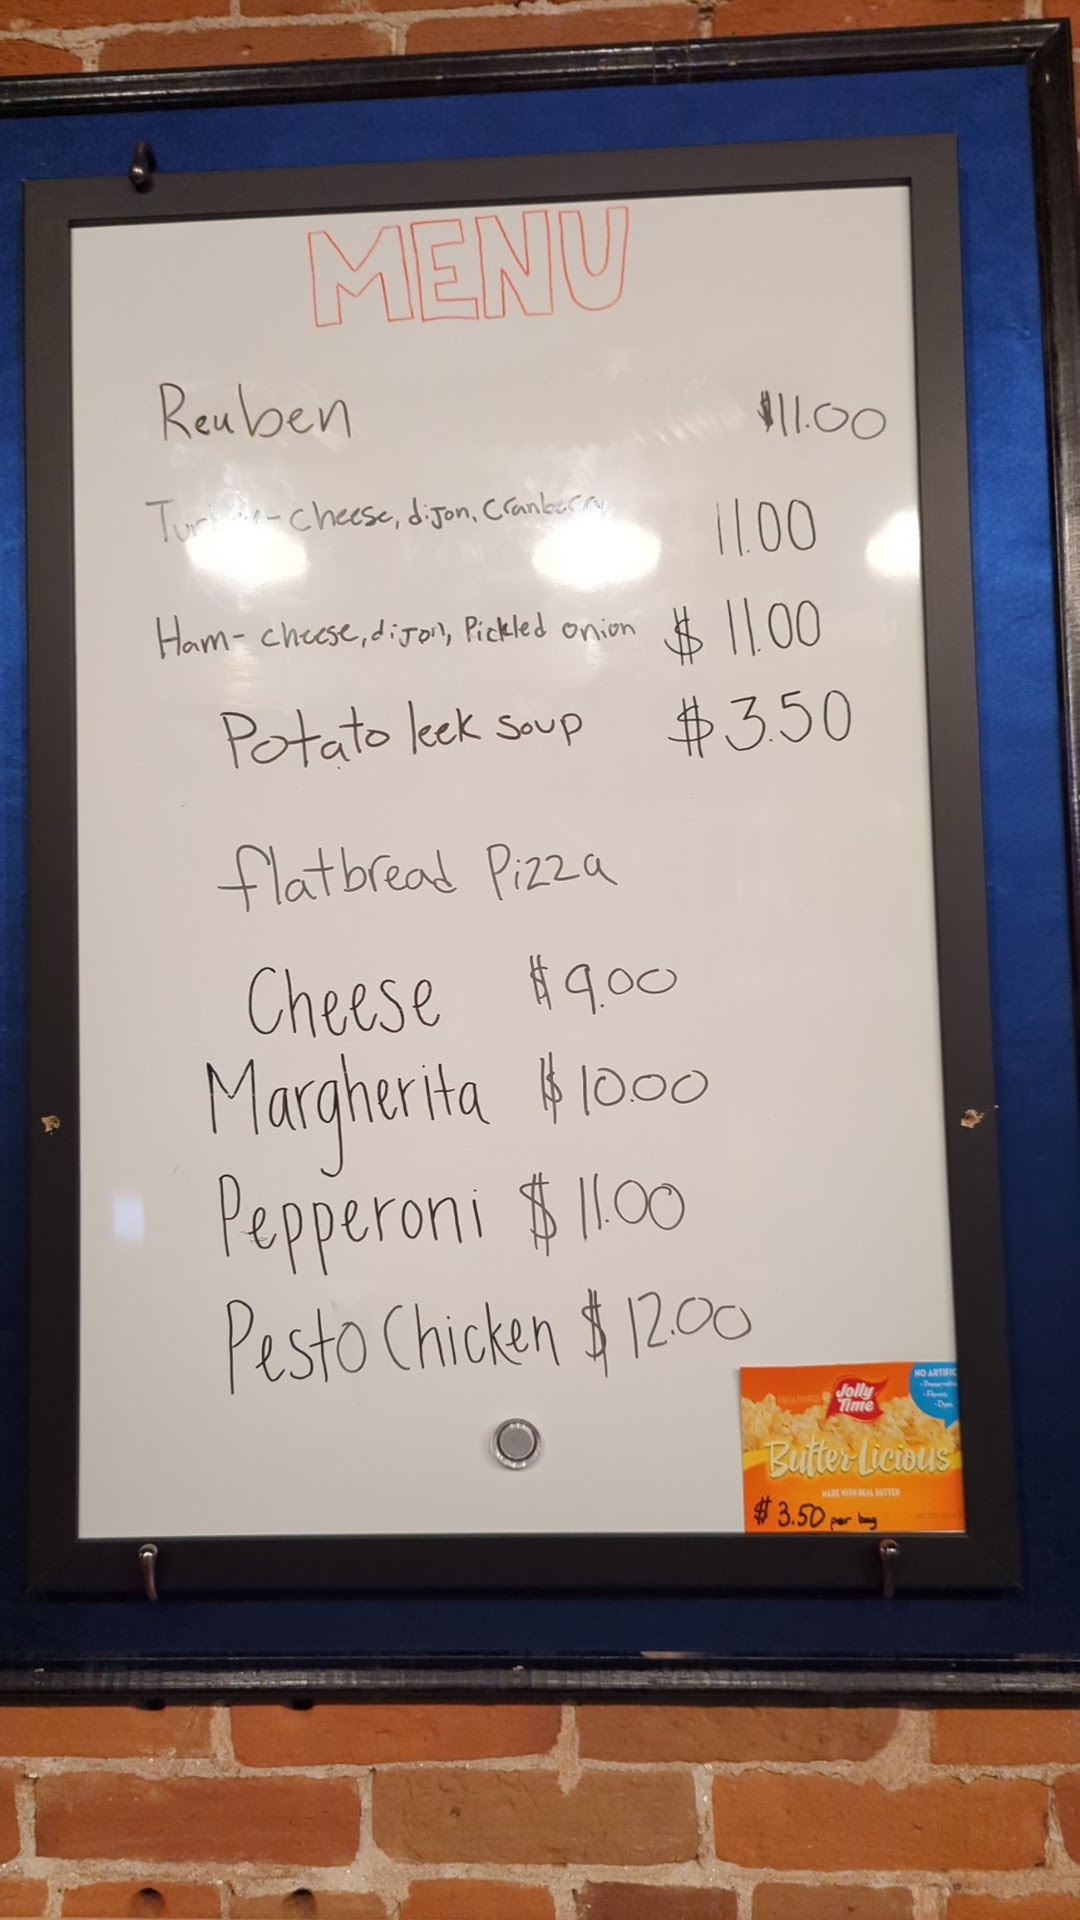 MENU
Reuben $11.00
Turkey- cheese, dijon, cranberry 11.00
Ham- cheese, dijon, Pickled onion $ 11.00
Potato leek soup $3.50
flatbread Pizza
Cheese $9.00
Margherita $10.00
Pepperoni $ 11.00
Pesto Chicken $12.00
Jolly Time
NO ARTIFIC
Flavors
Dyes
Butter-Licious
MADE WITH REAL BUTTER
$3.50 per bag